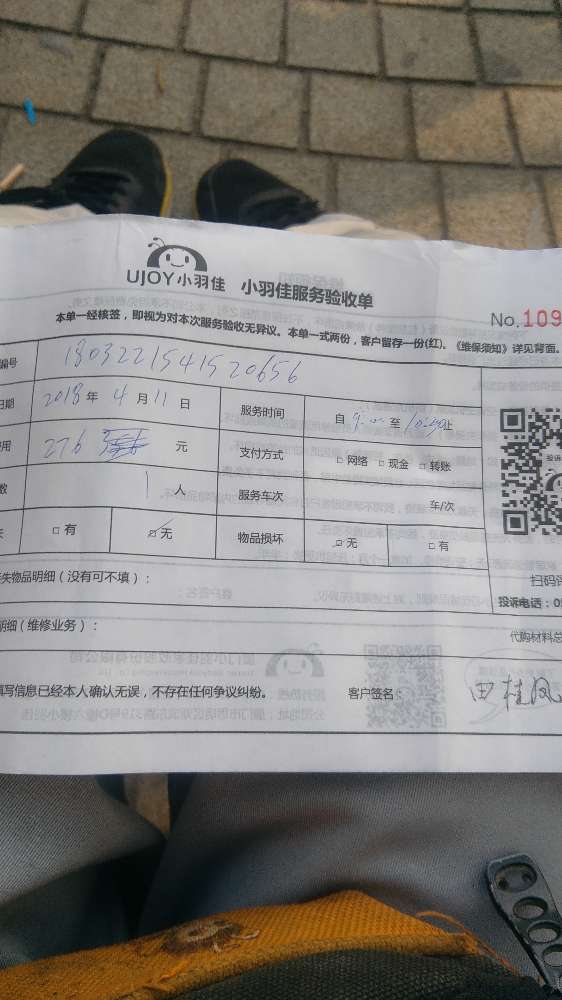 UJOY小羽佳 小羽佳服务验收单
No.109
本单一经核签，即视为对本次服务验收无异议。本单一式两份，客户留存一份(红)。《维保须知》详见背面。
编号 1803221541520656
日期 2018年4月11日 服务时间 自 至 止
用 276 元 支付方式 □网络 □现金 □转账
数 1人 服务车次 车/次
失 □有 □无 物品损坏 □无 □有
失物品明细（没有可不填）：
扫码评
投诉电话：05
明细（维修业务）：
代购材料总
填写信息已经本人确认无误，不存在任何争议纠纷。 客户签名： 田桂凤